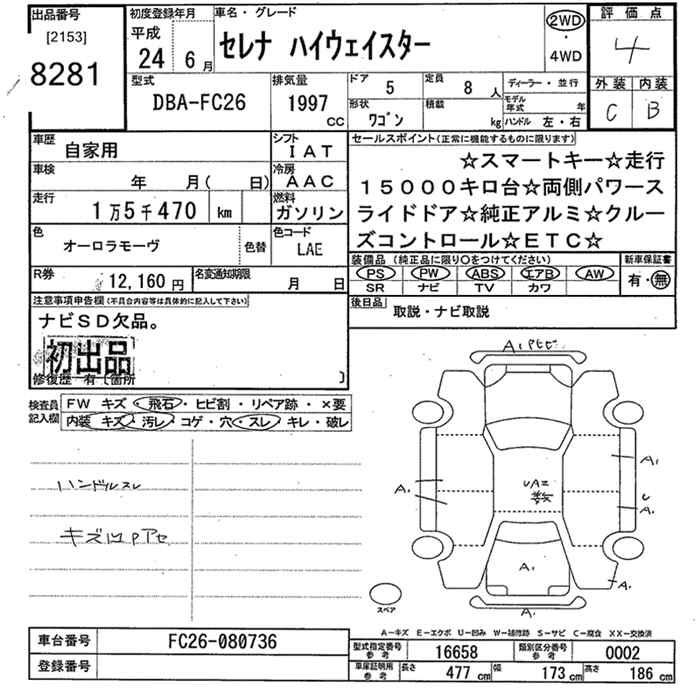 出品番号 初度登録年月 車名・グレード 評価点
[2153] 平成 2WD
8281 24 6月 セレナ ハイウェイスター ・ 4
4WD
型式 排気量 ドア 定員 ディーラー・並行 外装 内装
DBA-FC26 1997 CC 5 8人 モデル年式 年 C B
形状 ワゴン 積載 kg ハンドル 左・右
車歴 自家用 シフト IAT セールスポイント(正常に機能するものに限ります)
車検 年 月( 日) 冷房 AAC ☆スマートキー☆走行
走行 1万5千470 km 燃料 ガソリン 15000キロ台☆両側パワース
色 オーロラモーヴ 色替 色コード LAE ライドドア☆純正アルミ☆クルー
ズコントロール☆ETC☆
R券 12,160円 名変通知期限 月 日 装備品(純正品に限り〇をつけてください) 新車保証書
PS PW ABS エアB AW 有・無
SR ナビ TV カワ
注意事項申告欄(不具合内容等は具体的に記入して下さい) 後日品 取説・ナビ取説
ナビSD欠品。
初出品
修復歴 有〔箇所 〕
検査員記入欄 FW キズ・飛石・ヒビ割・リペア跡・×要
内装 キズ・汚レ・コゲ・穴・スレ・キレ・破レ
ハンドルスレ
A1
A1
A1
UA2
U
A1
A1
A1
A1
スペア
A-キズ E-エクボ U-凹み W-補修跡 S-サビ C-腐食 XX-交換済
車台番号 FC26-080736 型式指定番号 参考 16658 類別区分番号 参考 0002
登録番号 車庫証明用 参考 長さ 477cm 幅 173cm 高さ 186cm